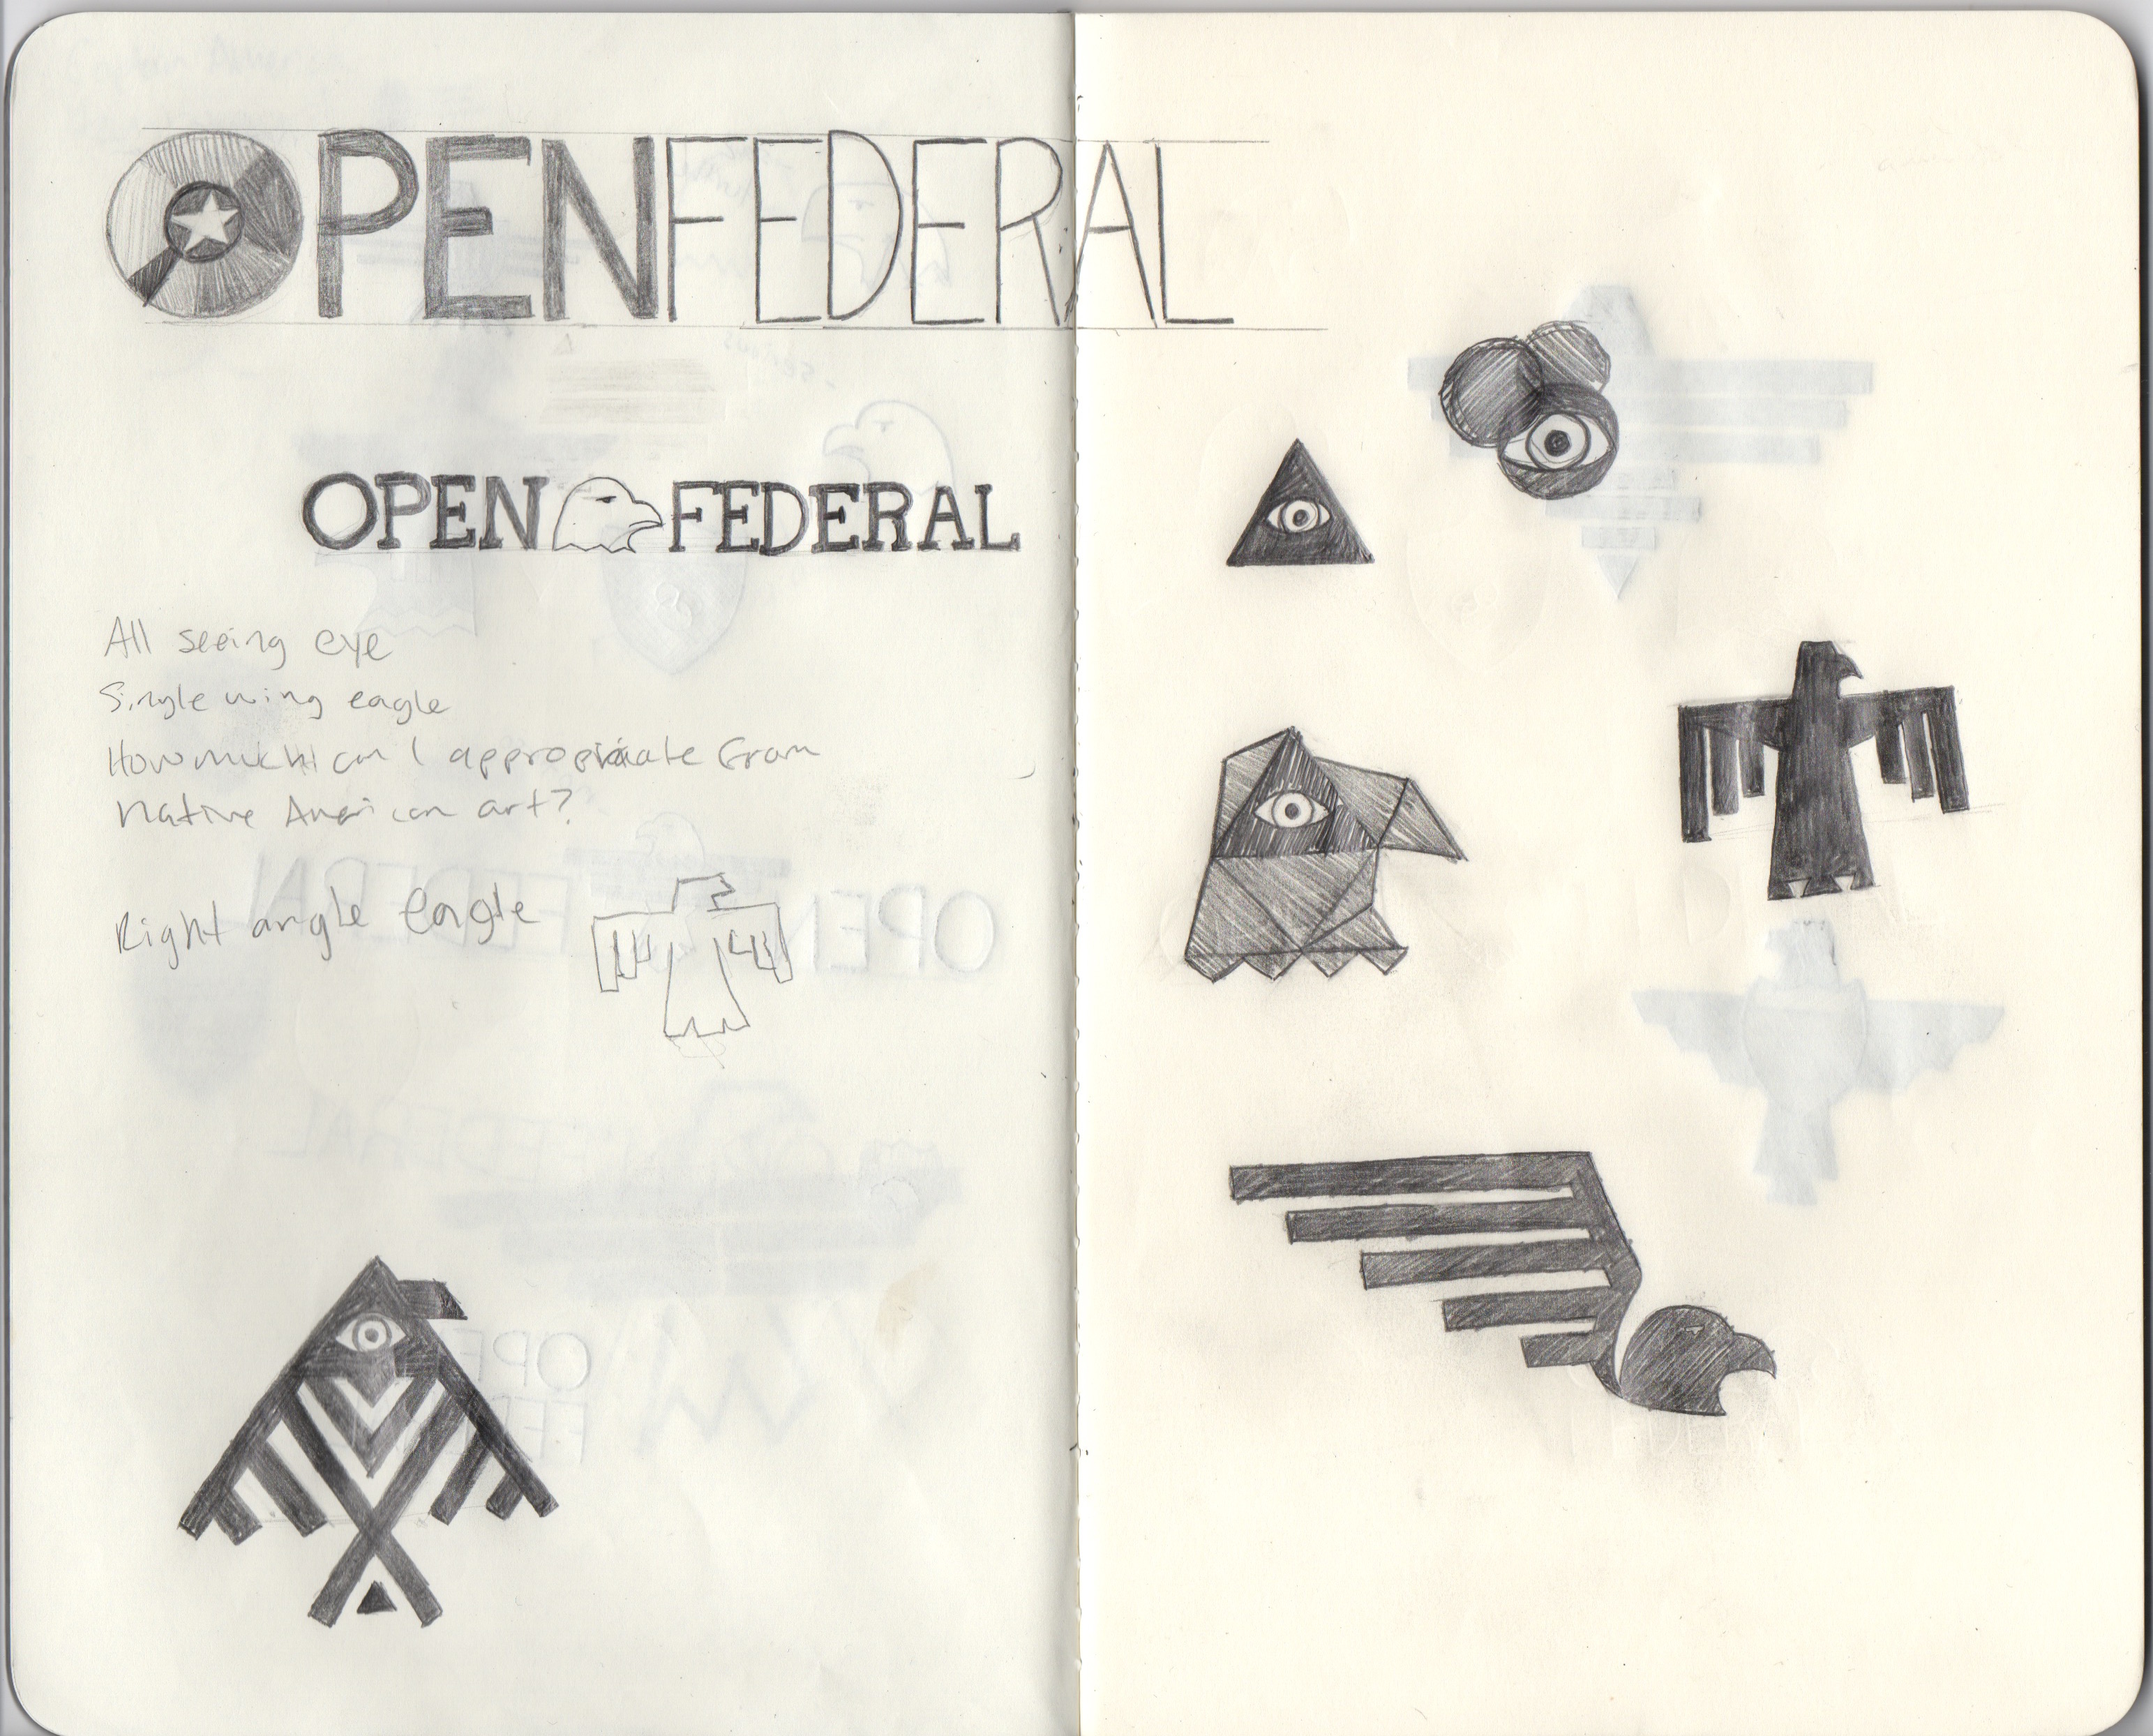 OPENFEDERAL
OPEN FEDERAL
All seeing eye
Single wing eagle
How much can I appropriate from
Native American art?
Right angle eagle